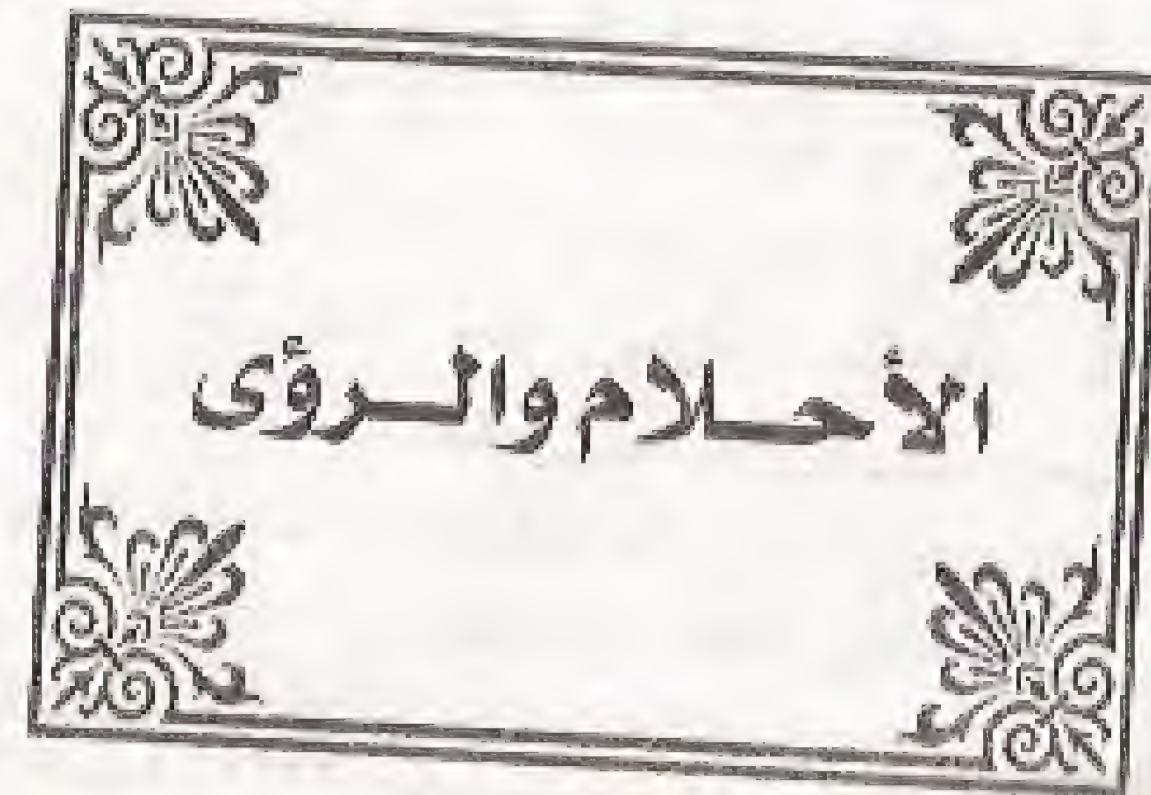 الأحلام والرؤى